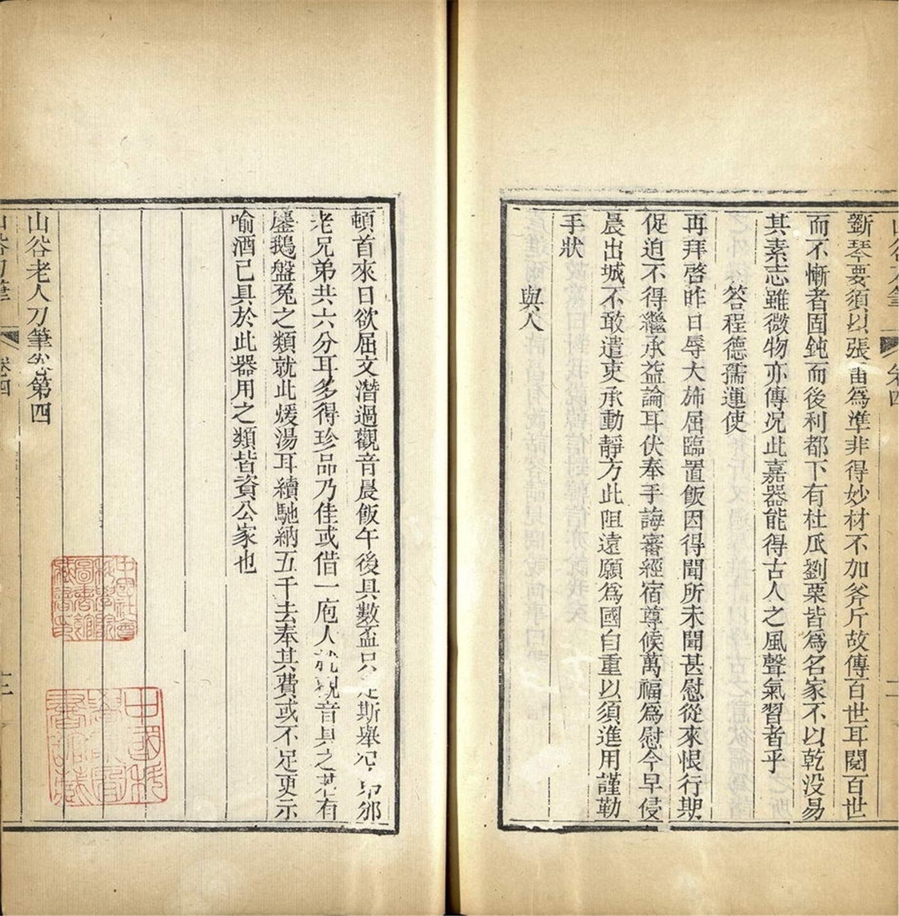 斵琴要須以張雷為準非得妙材不加斧斤故傳百世耳閱百世
而不慚者固鈍而後利都下有杜瓜劉栗皆為名家不以乾没易
其素志雖微物亦傳况此嘉器能得古人之風聲氣習者乎
答程德孺運使
再拜啓昨日辱大斾屈臨置飯因得聞所未聞甚慰從來恨行期
促迫不得繼承益論耳伏奉手誨審經宿尊候萬福為慰今早侵
晨出城不敢遣吏承動靜方此阻遠願為國自重以須進用謹勒
手狀
與人
頓首來日欲屈文潛過觀音晨飯午後具數盃只 斯舉 邪
老兄弟共六分耳多得珍品乃佳或借一庖人 觀音具之若有
麞鵝盤兔之類就此煖湯耳續馳納五千去奉其費或不足更示
喻酒已具於此器用之類皆資公家也
山谷老人刀筆卷第四
卷四